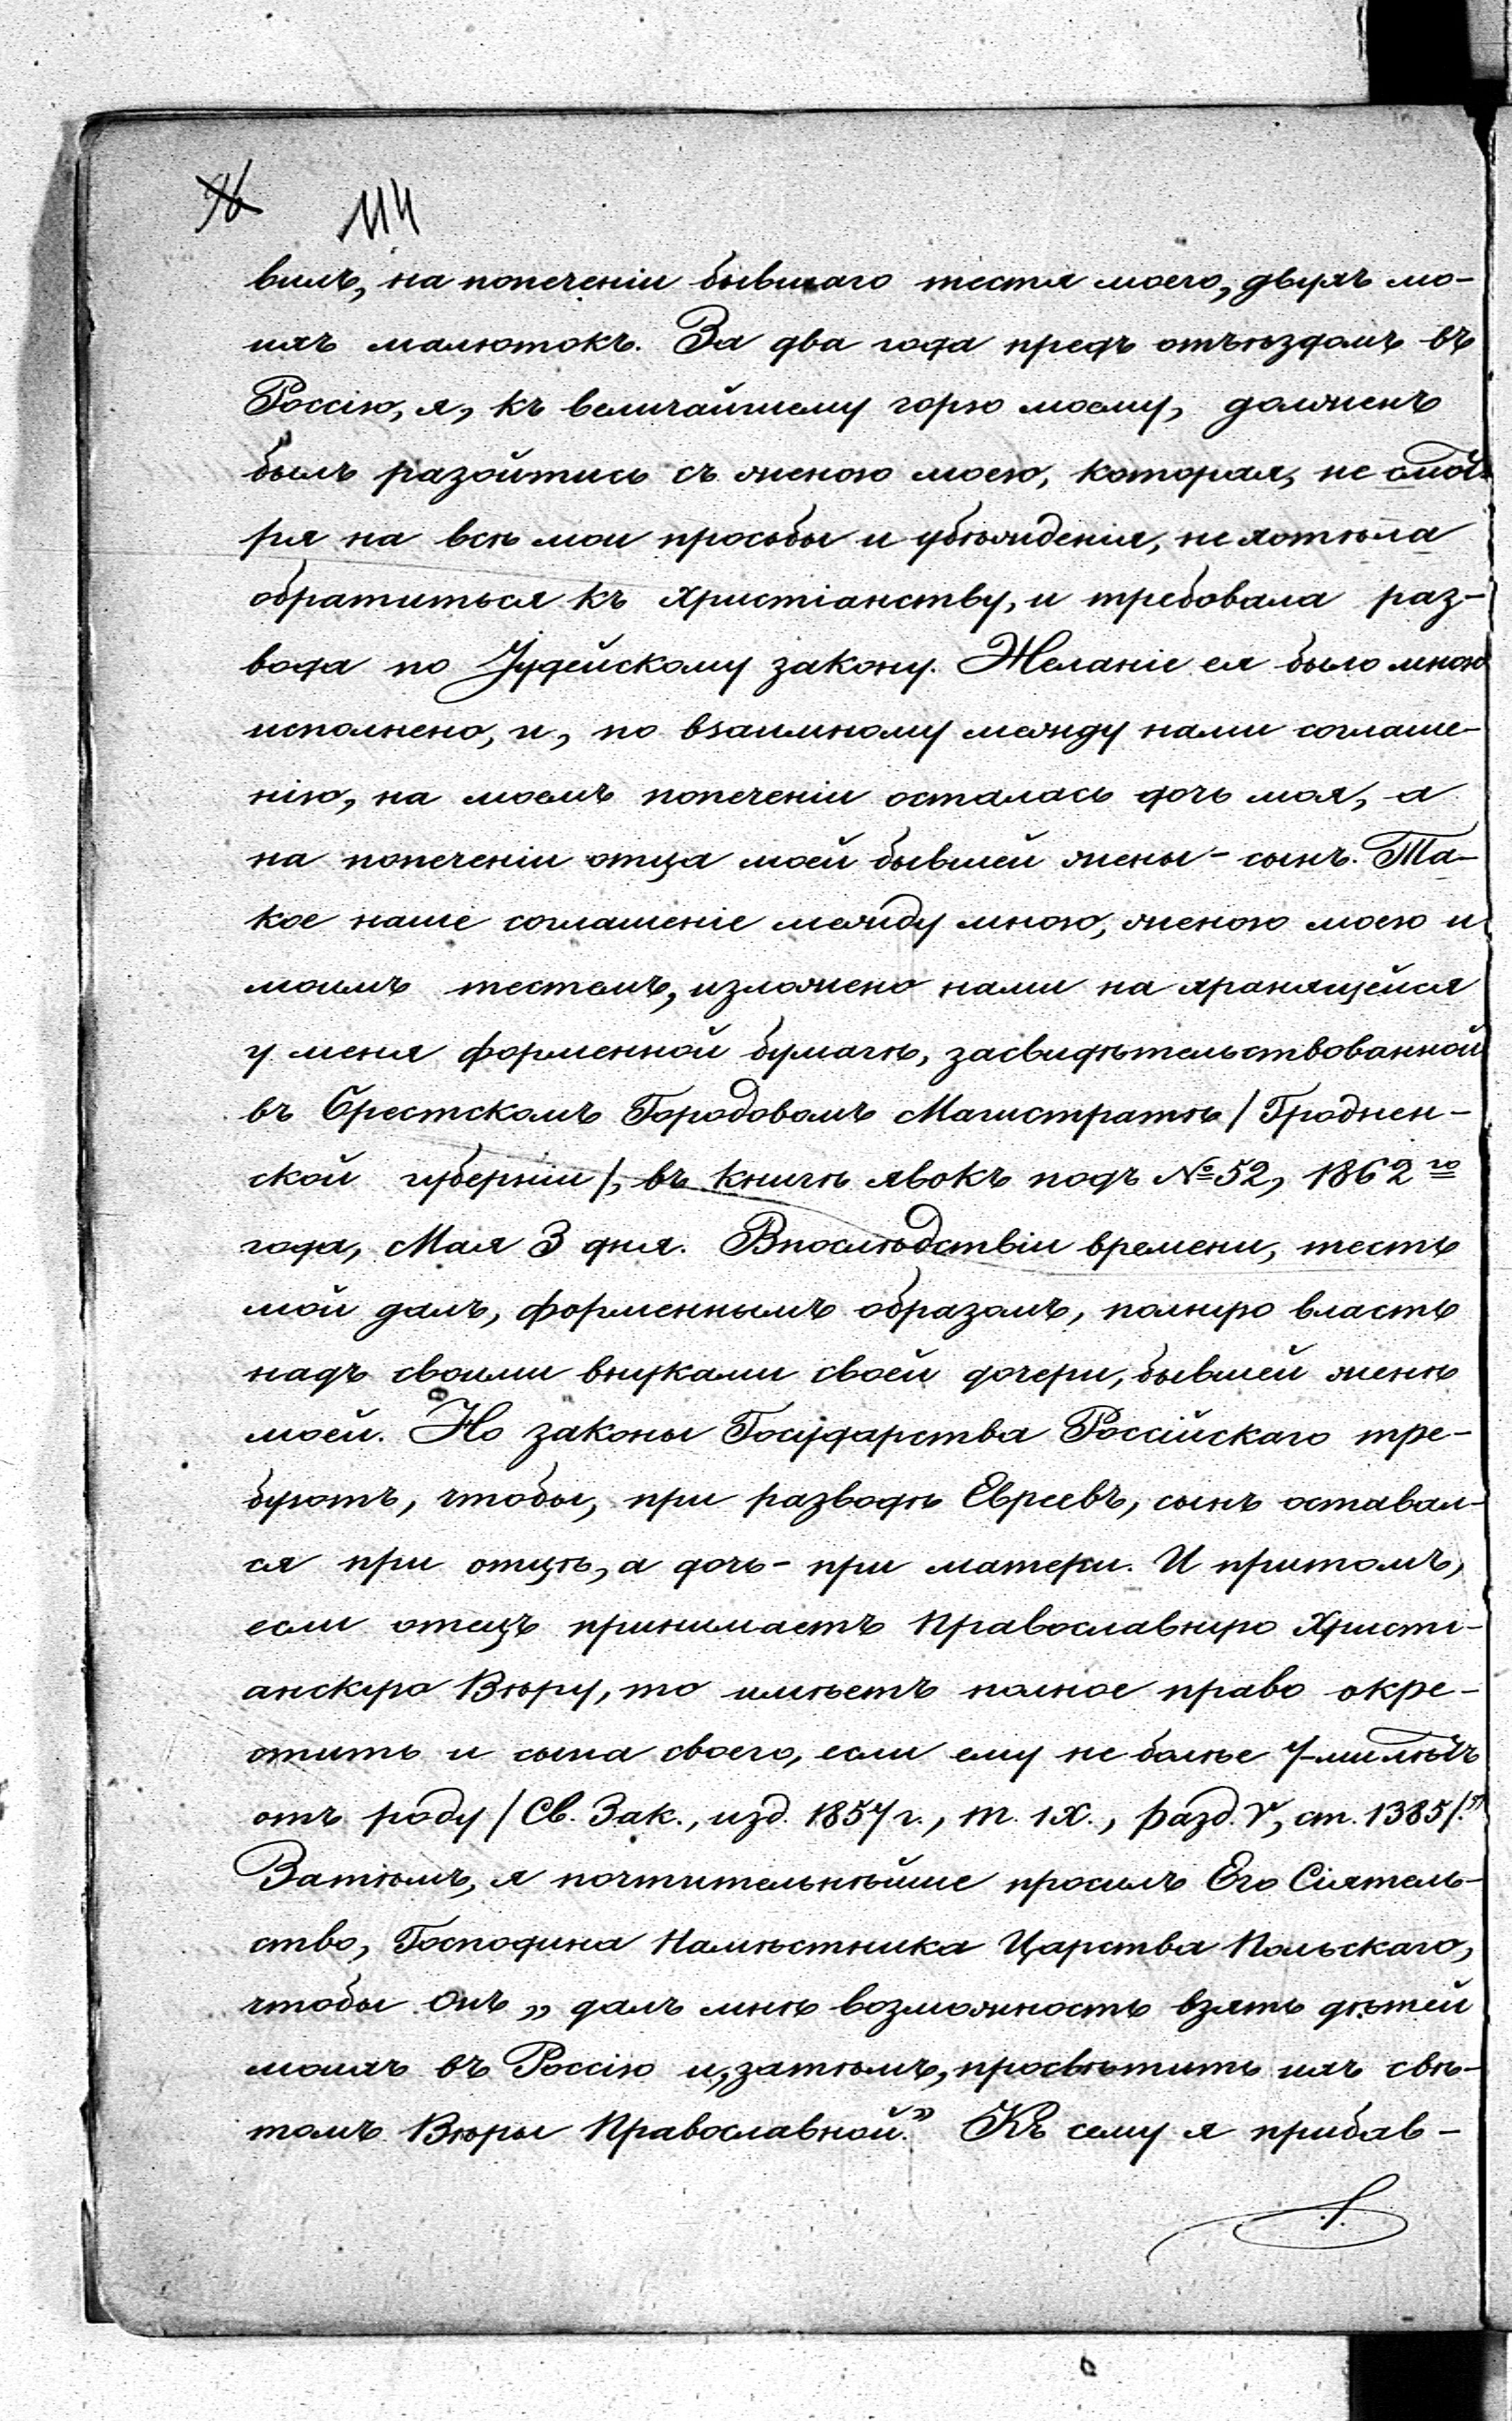 96
114
вилъ, на попеченіи бывшаго тестя моего, двухъ мо-
ихъ малютокъ. За два года предъ отъѣздомъ въ
Россію, я, къ величайшему горю моему, долженъ
былъ разойтись съ женою моею, которая, не смот-
ря на всѣ мои просьбы и убѣжденія, не хотѣла
обратиться къ христіанству, и требовала раз-
вода по Іудейскому закону. Желаніе ея было мною
исполнено, и, по взаимному между нами соглаше-
нію, на моемъ попеченіи осталась дочь моя, а
на попеченіи отца моей бывшей жены - сынъ. Та-
кое наше соглашеніе между мною, женою моею и
моимъ тестемъ, изложено нами на хранящейся
у меня форменной бумагѣ, засвидѣтельствованной
въ Брестскомъ Городовомъ Магистратѣ /Гроднен-
ской губерніи/, въ книгѣ явокъ подъ №52, 1862го
года, Мая 3 дня. Впослѣдствіи времени, тесть
мой далъ, форменнымъ образомъ, полную власть
надъ своими внуками своей дочери, бывшей женѣ
моей. Но законы Государства Россійскаго тре-
буютъ, чтобы, при разводѣ Евреевъ, сынъ оставал-
ся при отцѣ, а дочь - при матери. И притомъ,
если отецъ принимаетъ Православную Христі-
анскую Вѣру, то имѣетъ полное право окре-
стить и сына своего, если ему не болѣе 7-ми лѣтъ
отъ роду /Св. Зак., изд. 1857 г., т. IX., разд. V, ст. 1385/."
Затѣмъ, я почтительнѣйше просилъ Его Сіятель-
ство, Господина Намѣстника Царства Польскаго,
чтобы Онъ „далъ мнѣ возможность взять дѣтей
моихъ въ Россію и, затѣмъ, просвѣтить ихъ свѣ-
томъ Вѣры Православной." Къ сему я прибав-